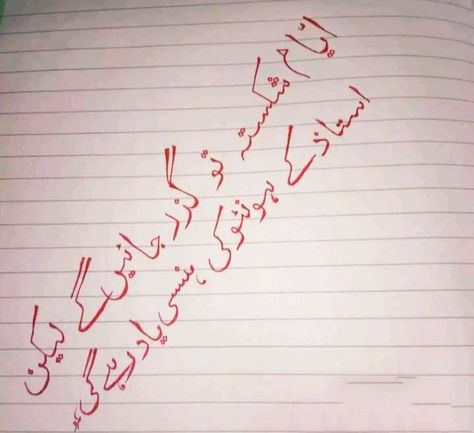 ایّام شکستہ تو گذر جائیں گے لیکن
استاذ کے ہونٹوکی ہنسی یاد رہے گی